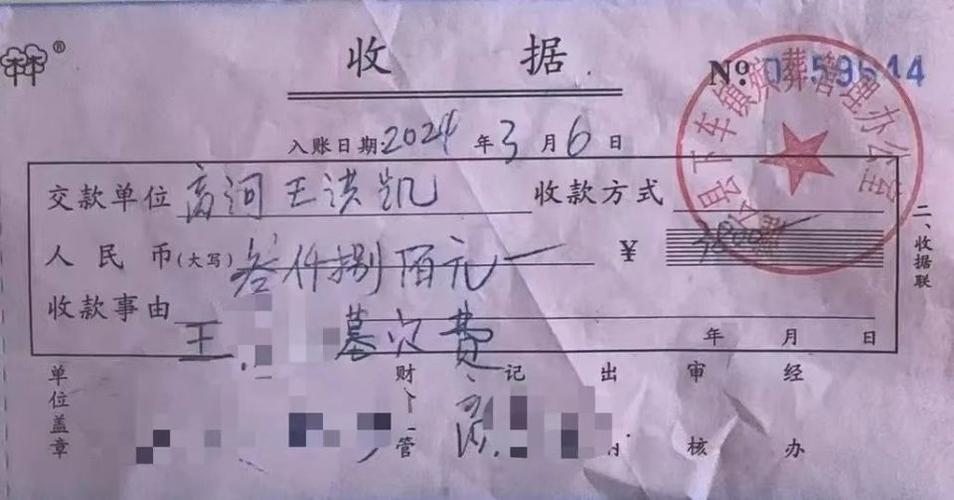 收据
№ 0159514
入账日期:2024年3月6日
交款单位 高河王洪凯 收款方式
人民币(大写) 叁仟捌佰元 ¥ 3800
收款事由
王 墓穴费
年 月 日
单位盖章 财 管 记 出 审核 经办
二、收据联
县下车镇殡葬管理办公室